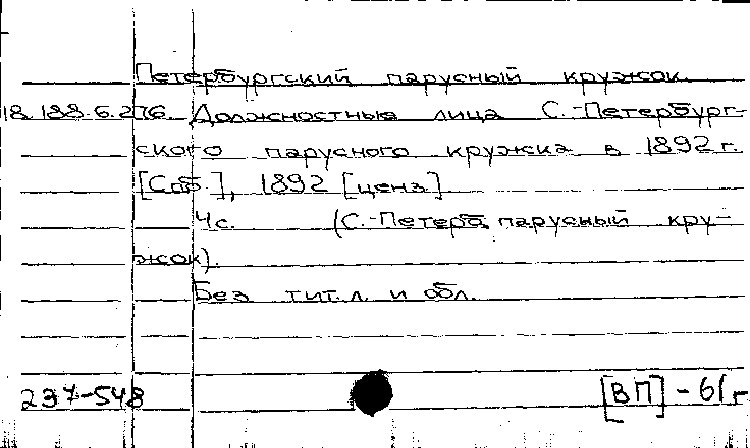 Петербургский парусный кружок.
18.188.6.276 Должностные лица С.-Петербург-
ского парусного кружка в 1892 г.
[Спб.], 1892 [ценз.]
4 с. (С.-Петерб. парусный кру-
жок).
Без тит. л. и обл.
237-548 [ВП] - 61 г